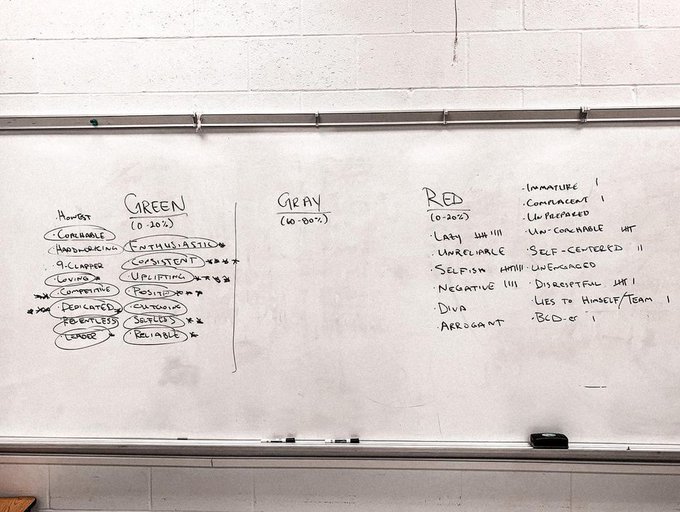 GREEN
(0-20%)
HONEST
• COACHABLE
HARDWORKING
9-CLAPPER
LOVING
• COMPETITIVE
• DEDICATED
RELENTLESS
LEADER
ENTHUSIASTIC
CONSISTENT
UPLIFTING
POSITIVE
OUTGOING
SELFLESS
RELIABLE
GRAY
(60-80%)
RED
(0-20%)
• LAZY
• UNRELIABLE
• SELFISH
• NEGATIVE
• DIVA
• ARROGANT
• IMMATURE
• COMPLACENT
• UNPREPARED
• UN-COACHABLE
• SELF-CENTERED
• UNENGAGED
• DISRESPTFUL
• LIES TO HIMSELF/TEAM
• BCD-er